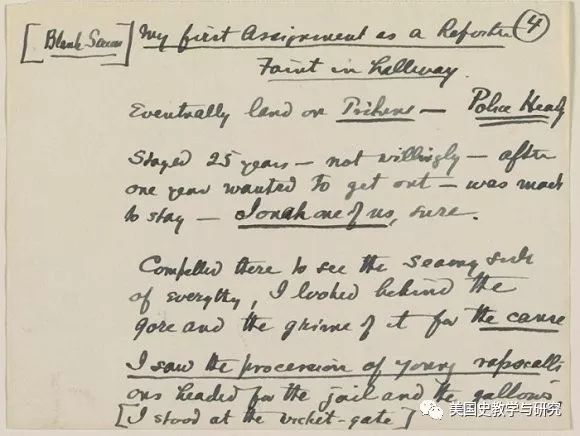 [Blank Screen] My first Assignment as a Reporter 4
Faint in hallway.
Eventually land on Tribune — Police Headq
Stayed 25 years — not willingly — after
one year wanted to get out — was made
to stay — Jonah one of us, sure.
Compelled there to see the seamy side
of everythg, I looked behind the
gore and the grime of it for the cause
I saw the procession of young rapscalli
ons headed for the jail and the gallows
[I stood at the wicket-gate]
美国史教学与研究